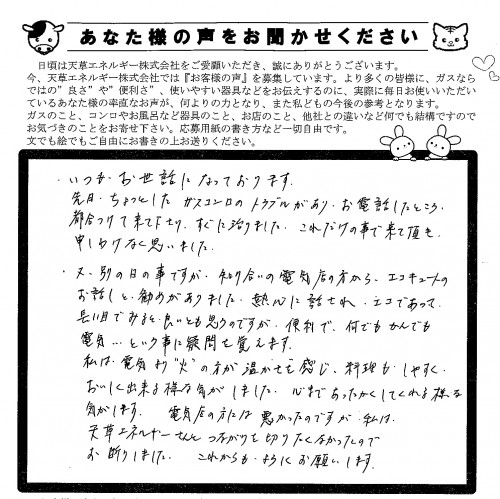 あなた様の声をお聞かせください
日頃は天草エネルギー株式会社をご愛顧いただき、誠にありがとうございます。
今、天草エネルギー株式会社では『お客様の声』を募集しています。より多くの皆様に、ガスなら
ではの”良さ”や”便利さ”、使いやすい器具などをお伝えするのに、実際に毎日お使いいただい
ているあなた様の率直なお声が、何よりの力となり、また私どもの今後の参考となります。
ガスのこと、コンロやお風呂など器具のこと、お店のこと、他社との違いなど何でも結構ですので
お気づきのことをお寄せ下さい。応募用紙の書き方など一切自由です。
文でも絵でもご自由にお書きの上お送りください。
・いつもお世話になっております。
先日・ちょっとした ガスコンロのトラブルがあり・お電話したところ・
都合つけて来て下さり、すぐに治りました。これだけの事で来て頂き、
申しわけなく思いました。
・又、別の日の事ですが・知り合いの電気店の方から、エコキュートの
お話しと、勧めがありました。熱心に話され、エコであって、
長い目でみると良いとも思うのですが、便利で、何でもかんでも
電気…という事に疑問を覚えます。
私は、電気より”火”の方が温かさを感じ、料理もしやすく、
おいしく出来る様な気がしました。心まであったかくしてくれる様な
気がします。 電気店の方には悪かったのですが、私は、
天草エネルギーさんとつながりを切りたくなかったので
お断りしました。 これからも・よろしくお願いします。